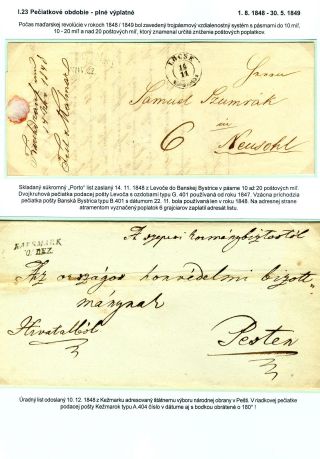 I.23 Pečiatkové obdobie - plné výplatné
1. 8. 1848 - 30. 5. 1849
Počas maďarskej revolúcie v rokoch 1848 / 1849 bol zavedený trojpásmový vzdialenostný systém s pásmami do 10 míľ,
10 - 20 míľ a nad 20 poštových míľ, ktorý znamenal určité zníženie poštových poplatkov.
Samuel Szumrák
6
Neusohl
Skladaný súkromný „Porto“ list zaslaný 14. 11. 1848 z Levoče do Banskej Bystrica v pásme 10 až 20 poštových míľ.
Dvojkruhová pečiatka podacej pošty Levoča s ozdobami typu G. 401 používaná od roku 1847. Vzácna príchodzia
pečiatka pošty Banská Bystrica typu B.401 s dátumom 22. 11. bola používaná v roku 1848. Na adresnej strane
atramentom vyznačený poplatok 6 grajciarov zaplatil adresát listu.
KAESMARK
A szepesi kormánybiztostól
Az országos honvédelmi bizott-
mánynak
Hivatalból
Pesten
Úradný list odoslaný 10. 12. 1848 z Kežmarku adresovaný štátnemu výboru národnej obrany v Pešti. V riadkovej pečiatke
podacej pošty Kežmarok typu A.404 číslo v dátume aj s bodkou obrátené o 180° !